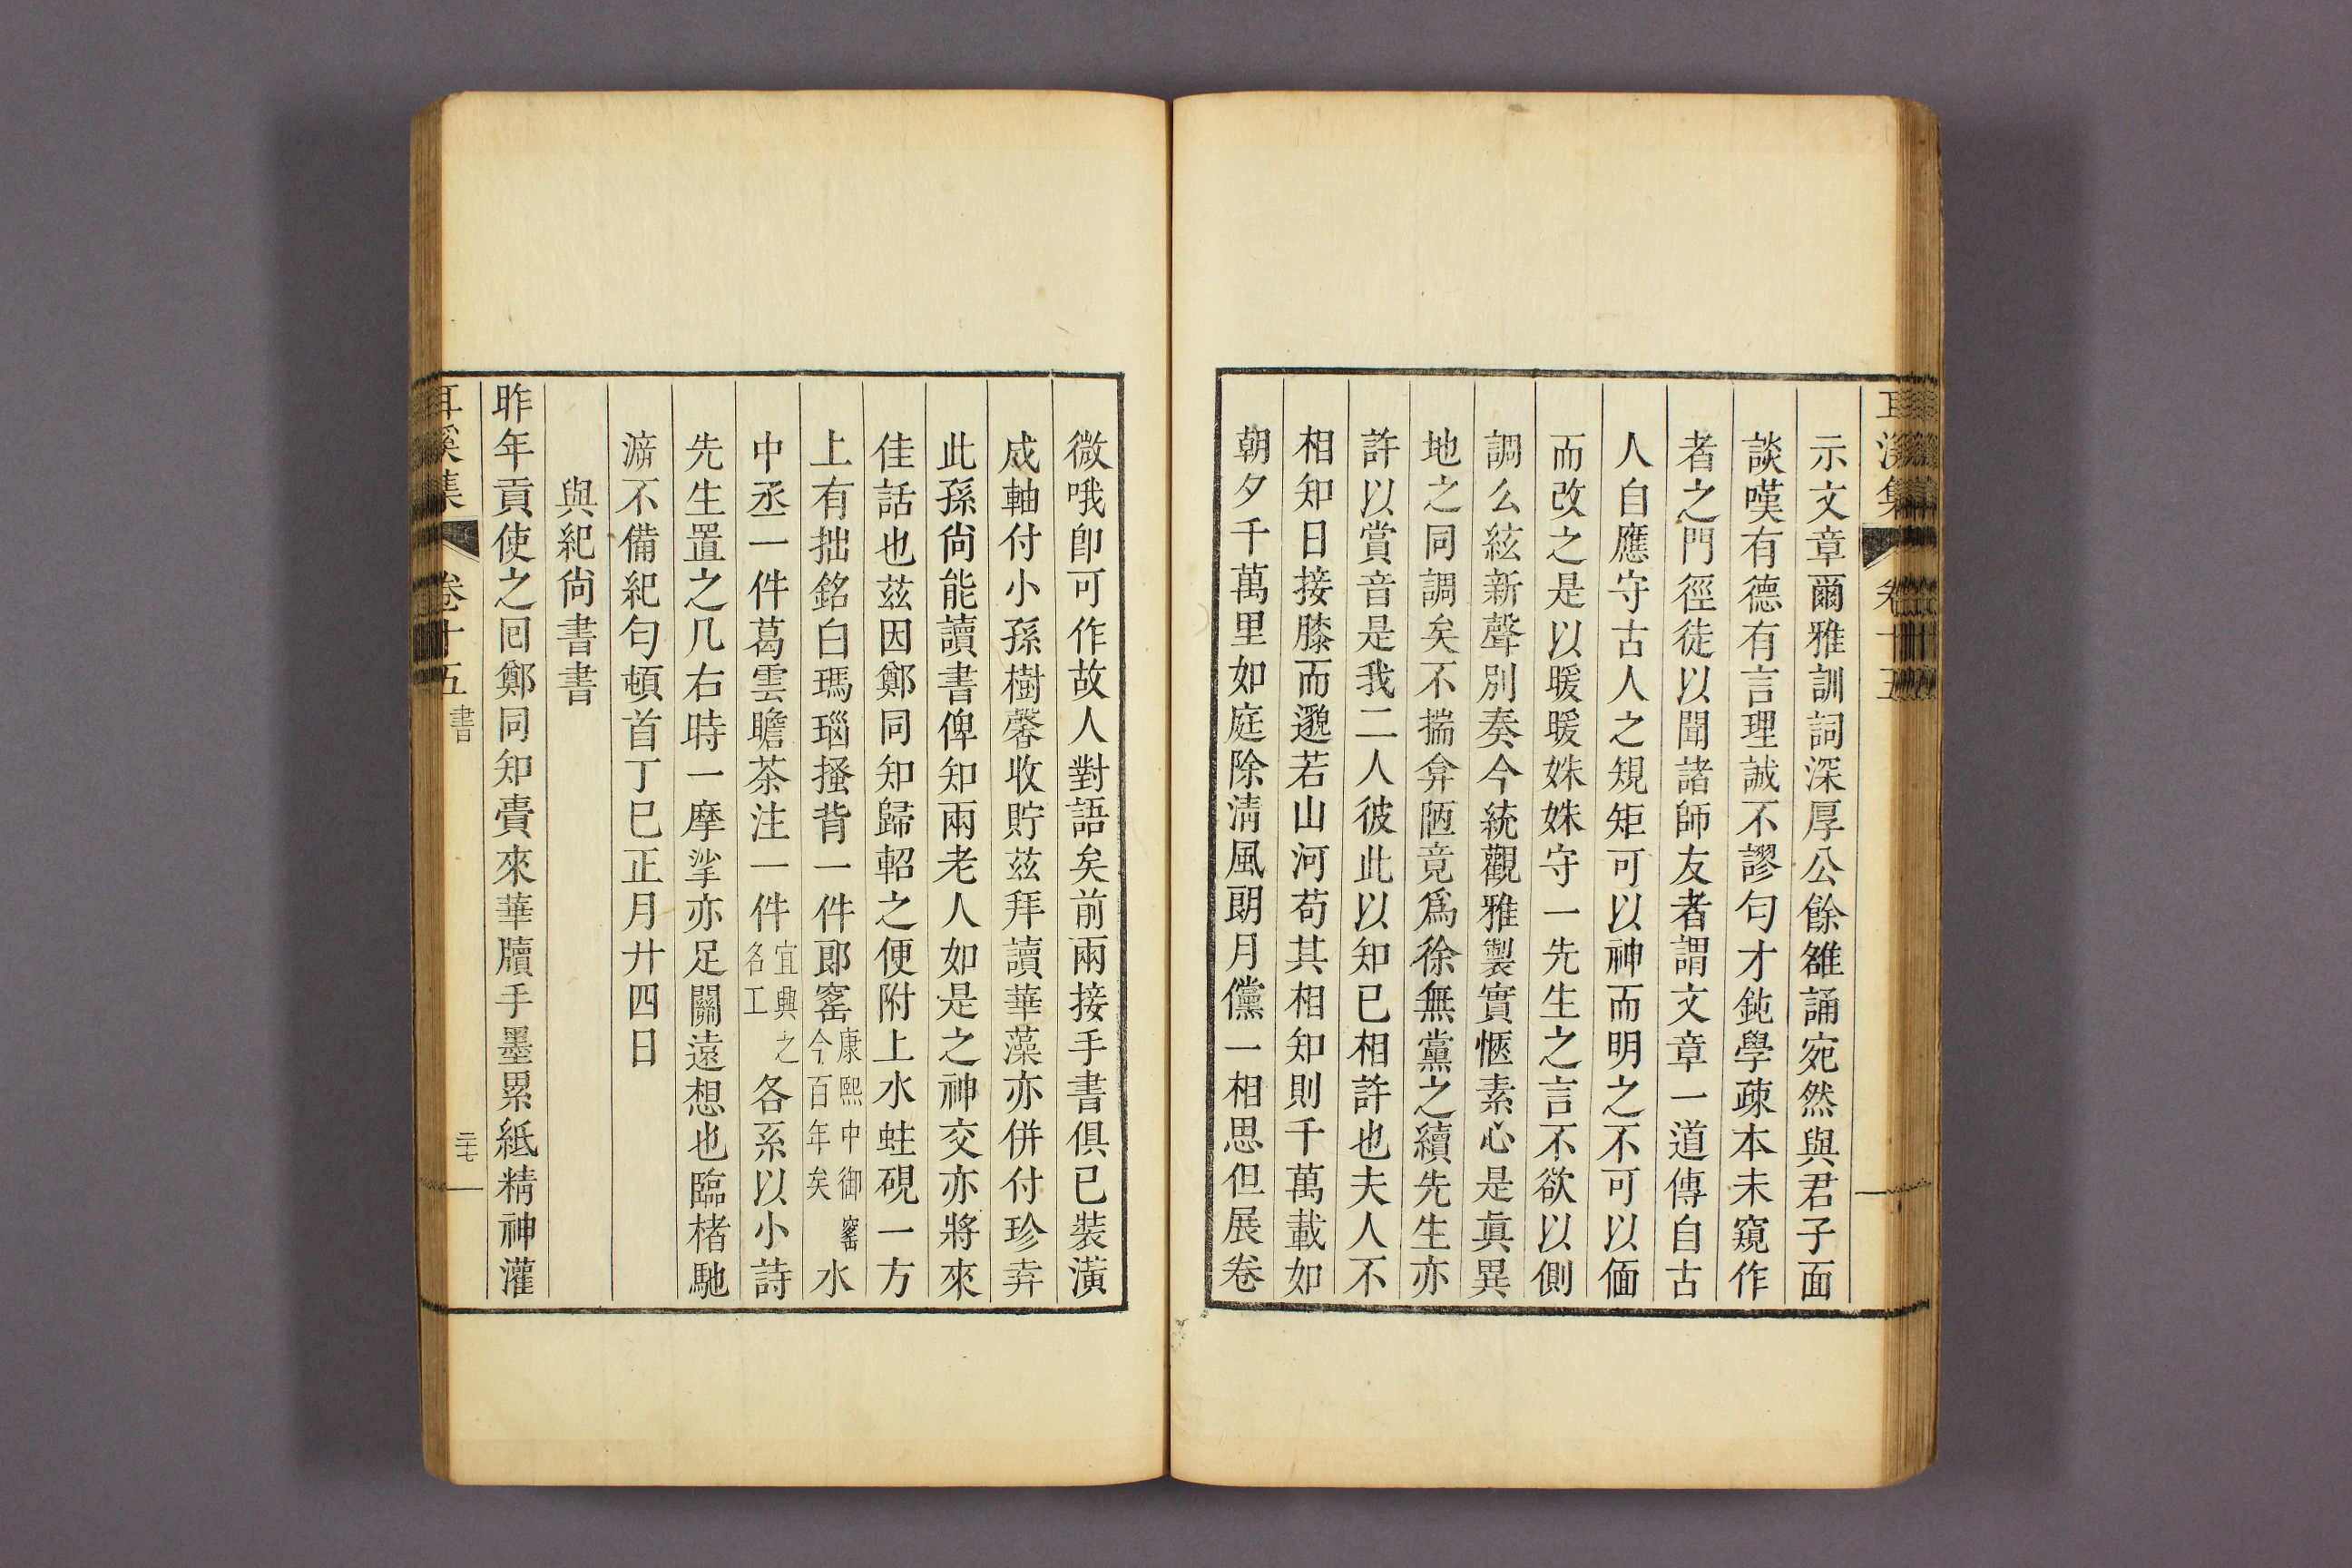 耳溪集 卷十五
示文章爾雅訓詞深厚公餘雒誦宛然與君子面
談嘆有德有言理誠不謬匀才鈍學疎本未窺作
者之門徑徒以聞諸師友者謂文章一道傳自古
人自應守古人之規矩可以神而明之不可以偭
而改之是以暖暖姝姝守一先生之言不欲以側
調么絃新聲別奏今統觀雅製實愜素心是眞異
地之同調矣不揣弇陋竟爲徐無黨之續先生亦
許以賞音是我二人彼此以知已相許也夫人不
相知日接膝而邈若山河苟其相知則千萬載如
朝夕千萬里如庭除淸風朗月儻一相思但展卷
微哦卽可作故人對語矣前兩接手書俱已裝潢
成軸付小孫樹馨收貯茲拜讀華藻亦併付珍弆
此孫尙能讀書俾知兩老人如是之神交亦將來
佳話也茲因鄭同知歸軺之便附上水蛙硯一方
上有拙銘白瑪瑙搔背一件郎窰康熙中御窰今百年矣水
中丞一件葛雲瞻茶注一件宜興之名工各系以小詩
先生置之几右時一摩挲亦足關遠想也臨楮馳
溯不備紀匀頓首丁巳正月廿四日
與紀尙書書
昨年貢使之回鄭同知賷來華牘手墨累紙精神灌
耳溪集 卷十五 書 二十七